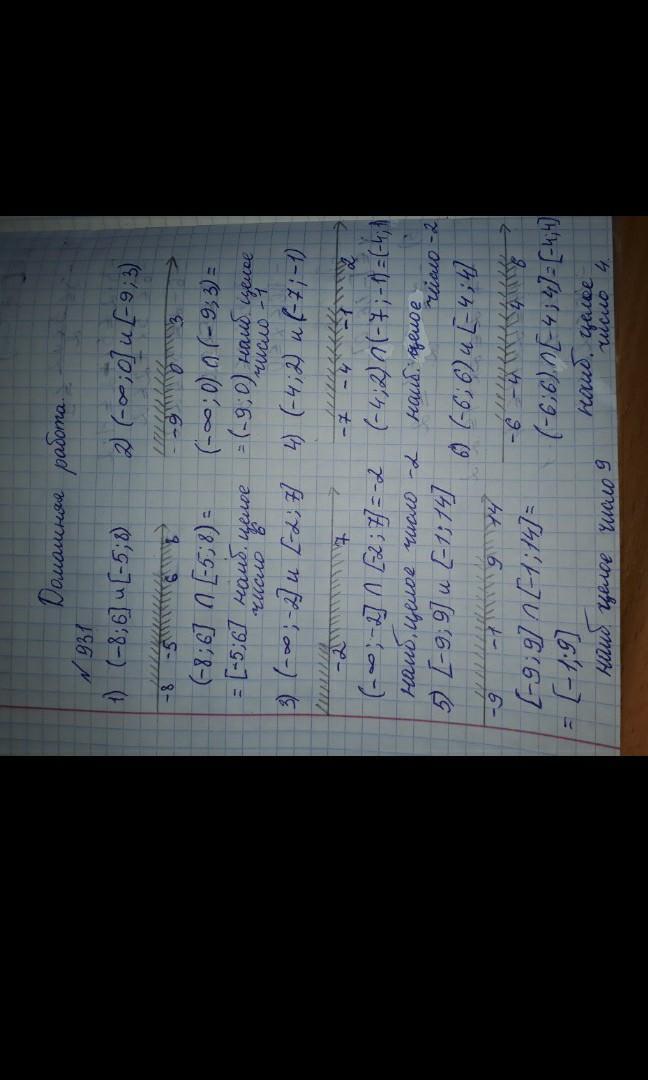 Домашняя работа.
№ 931
1) (-8;6] и [-5;8)
-8 -5 6 8
(-8;6] ∩ [-5;8) =
= [-5;6] наиб. целое
число 6
2) (-∞;0] и [-9;3)
-9 0 3
(-∞;0) ∩ (-9;3) =
= (-9;0) наиб. целое
число -1
3) (-∞;-2] и [-2;7]
-2 7
(-∞;-2] ∩ [-2;7] = -2
наиб. целое число -2
4) (-4;2) и (-7;-1)
-7 -4 -1 2
(-4;2) ∩ (-7;-1) = (-4;1)
наиб. целое
число -2
5) [-9;9] и [-1;14]
-9 -1 9 14
[-9;9] ∩ [-1;14] =
= [-1;9]
наиб целое число 9
6) (-6;6) и [-4;4]
-6 -4 4 6
(-6;6) ∩ [-4;4] = [-4;4]
наиб. целое
число 4.